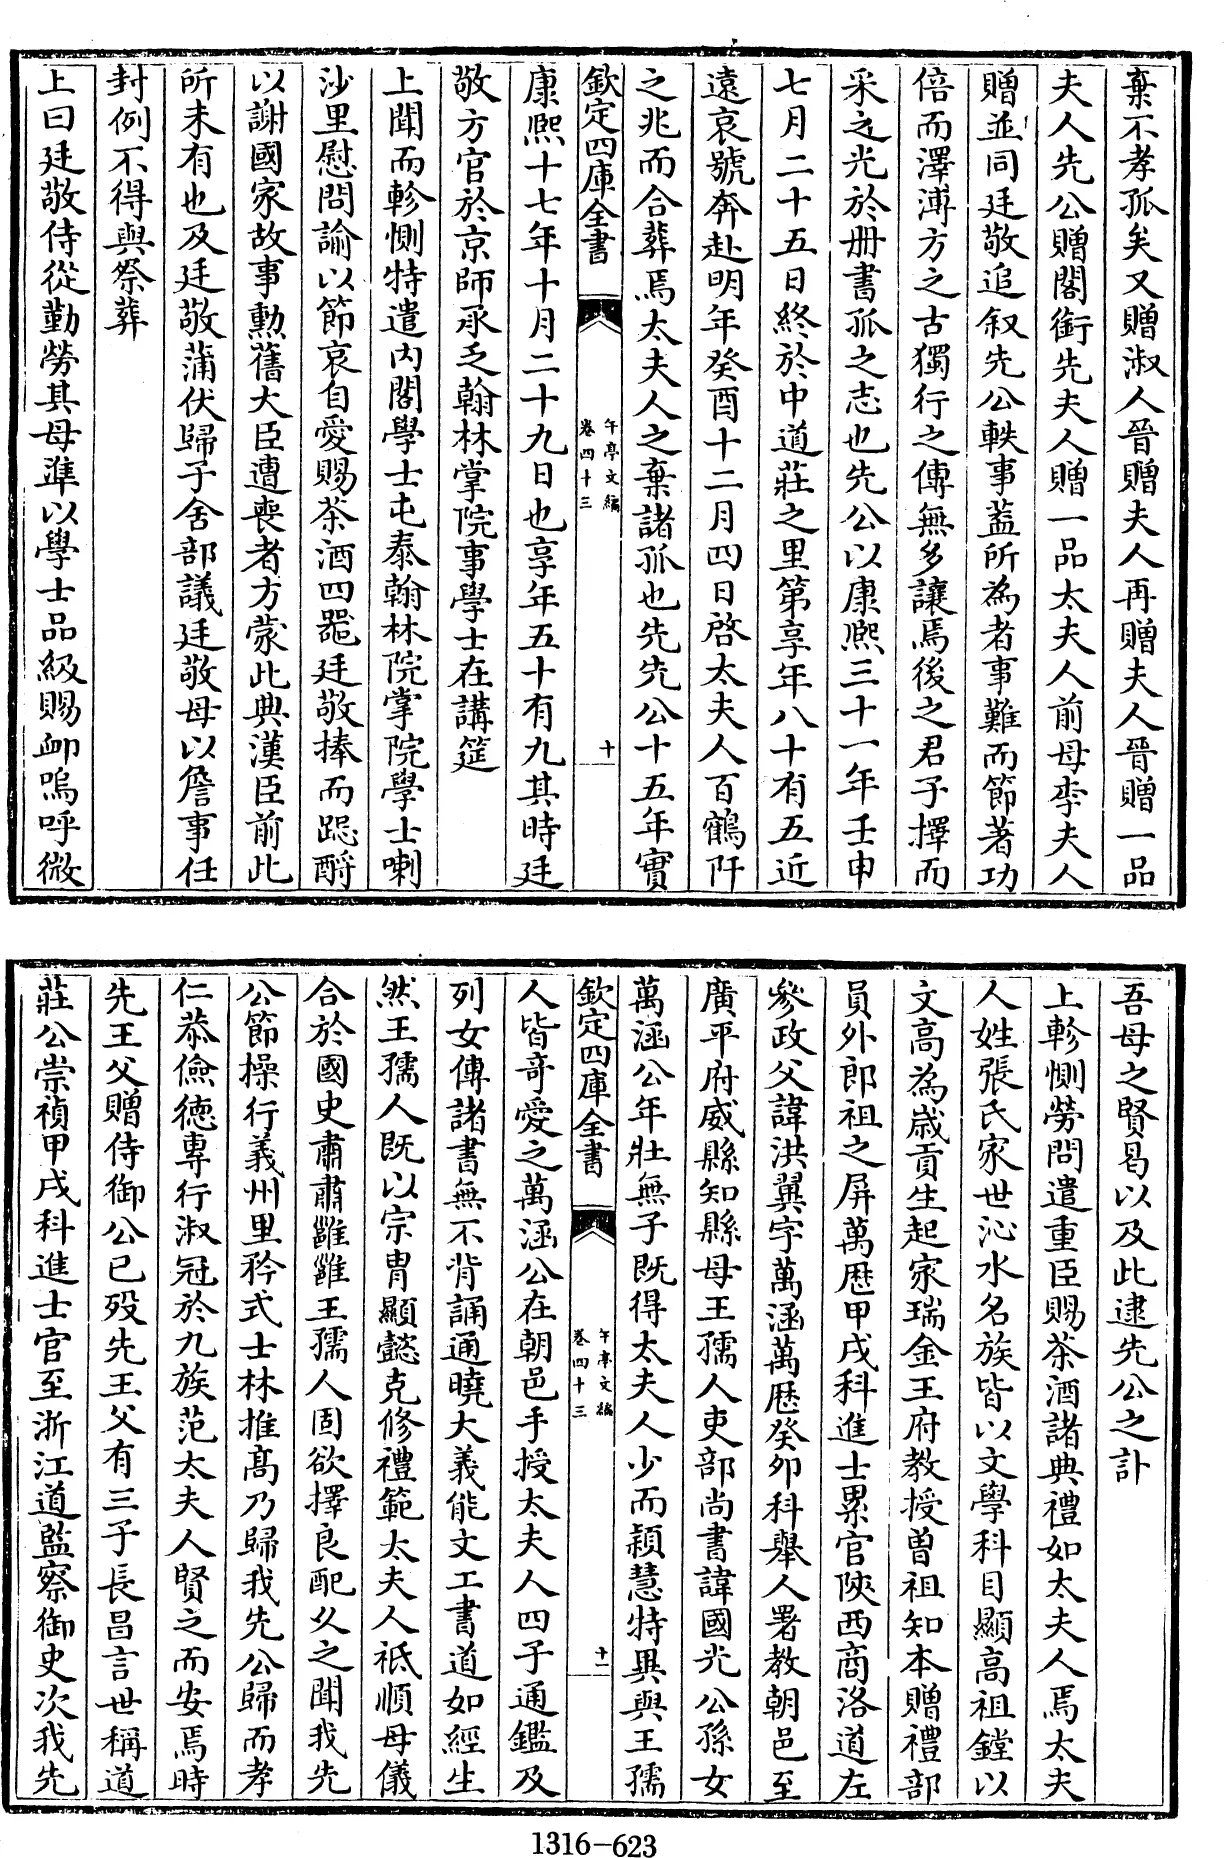 棄不孝孤矣又贈淑人晉贈夫人再贈夫人晉贈一品
夫人先公贈閣銜先夫人贈一品太夫人前母李夫人
贈並同廷敬追叙先公軼事蓋所為者事難而節著功
倍而澤溥方之古獨行之傳無多讓焉後之君子擇而
采之光於册書孤之志也先公以康熙三十一年壬申
七月二十五日終於中道莊之里第享年八十有五近
遠哀號奔赴明年癸酉十二月四日啓太夫人百鶴阡
之兆而合葬焉太夫人之棄諸孤也先先公十五年實
欽定四庫全書
午亭文編
卷四十三
十
康熙十七年十月二十九日也享年五十有九其時廷
敬方官於京師承乏翰林掌院事學士在講筵
上聞而軫惻特遣内閣學士屯泰翰林院掌院學士喇
沙里慰問諭以節哀自愛賜茶酒四器廷敬捧而跽酹
以謝國家故事勲舊大臣遭喪者方蒙此典漢臣前此
所未有也及廷敬蒲伏歸子舍部議廷敬母以詹事任
封例不得與祭葬
上曰廷敬侍從勤勞其母準以學士品級賜卹嗚呼微
吾母之賢曷以及此逮先公之訃
上軫惻勞問遣重臣賜茶酒諸典禮如太夫人焉太夫
人姓張氏家世沁水名族皆以文學科目顯高祖鏜以
文高為歲貢生起家瑞金王府教授曾祖知本贈禮部
員外郎祖之屏萬歷甲戌科進士累官陝西商洛道左
參政父諱洪翼字萬涵萬歷癸卯科舉人署教朝邑至
廣平府威縣知縣母王孺人吏部尚書諱國光公孫女
萬涵公年壯無子既得太夫人少而穎慧特異與王孺
欽定四庫全書
午亭文編
卷四十三
十一
人皆奇愛之萬涵公在朝邑手授太夫人四子通鑑及
列女傳諸書無不背誦通曉大義能文工書道如經生
然王孺人既以宗胄顯懿克修禮範太夫人祇順母儀
合於國史肅肅雝雝王孺人固欲擇良配久之聞我先
公節操行義州里矜式士林推高乃歸我先公歸而孝
仁恭儉德專行淑冠於九族范太夫人賢之而安焉時
先王父贈侍御公已歿先王父有三子長昌言世稱道
莊公崇禎甲戌科進士官至浙江道監察御史次我先
1316-623